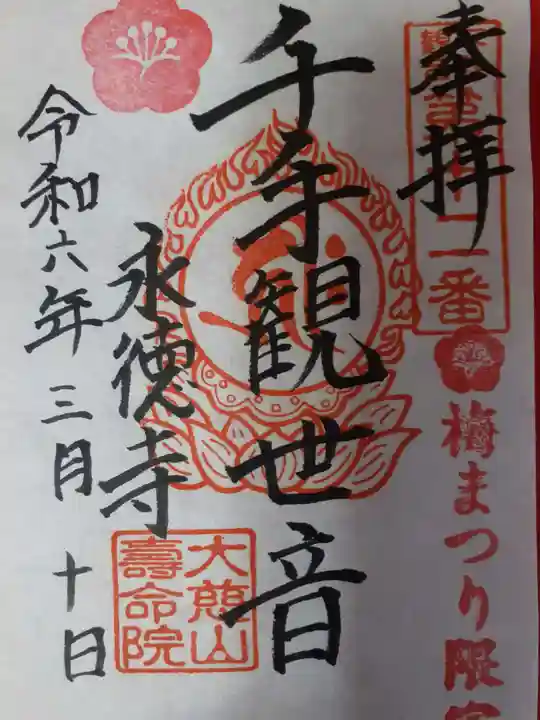 奉拝
二番
梅まつり限定
千手観世音
永徳寺
大慈山
壽命院
令和六年三月十日